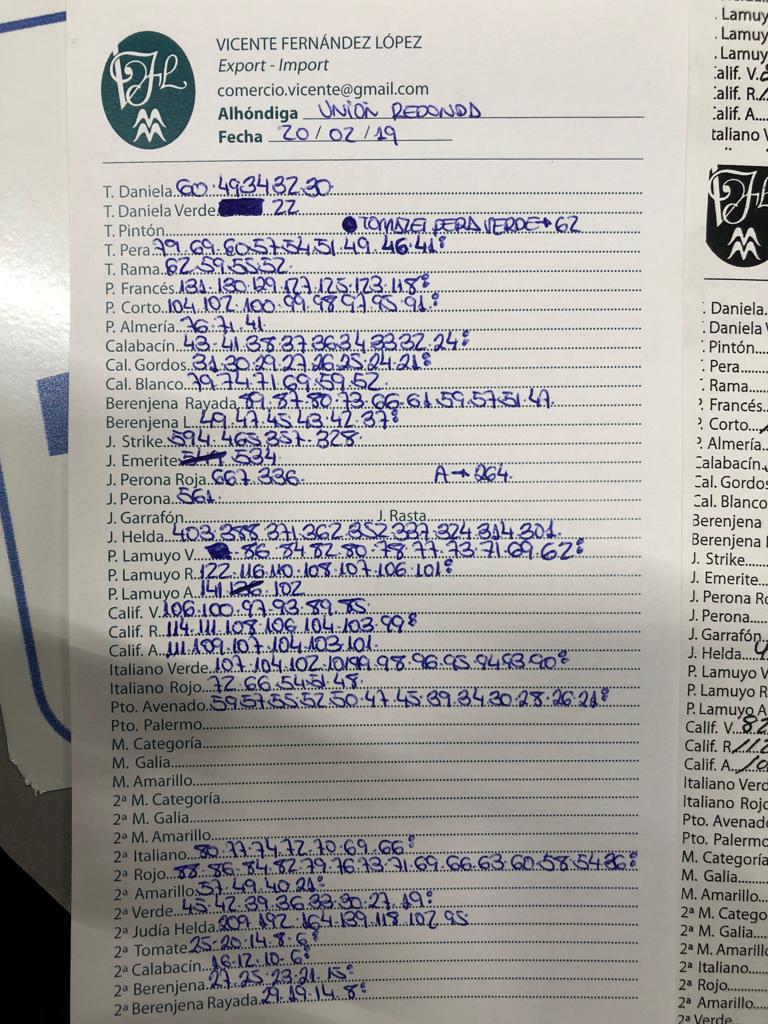 VICENTE FERNÁNDEZ LÓPEZ
Export - Import
comercio.vicente@gmail.com
Alhóndiga UNIÓN REDONDA
Fecha 20/02/19
T. Daniela 60.49.34.32.30
T. Daniela Verde 22
T. Pintón TOMATE PERA VERDE → 62
T. Pera 79.69.60.57.54.51.49.46.41
T. Rama 62.59.55.52
P. Francés 131.130.129.127.125.123.118
P. Corto 104.102.100.99.98.97.95.91
P. Almería 76.71.41
Calabacín 43.41.38.37.36.34.33.32.24
Cal. Gordos 31.30.29.27.26.25.24.21
Cal. Blanco 79.74.71.69.59.52
Berenjena Rayada 89.87.80.73.66.61.59.57.51.47
Berenjena L. 49.47.45.43.42.37
J. Strike 594.465.357.328
J. Emerite 534
J. Perona Roja 667.336 A → 264
J. Perona 561
J. Garrafón J. Rasta
J. Helda 403.388.371.362.352.337.324.314.301
P. Lamuyo V. 86.84.82.80.78.77.73.71.69.62
P. Lamuyo R. 122.116.110.108.107.106.101
P. Lamuyo A. 141 102
Calif. V. 106.100.97.93.89.85
Calif. R. 114.111.108.106.104.103.99
Calif. A. 111.109.107.104.103.101
Italiano Verde 107.104.102.101.99.98.96.95.94.93.90
Italiano Rojo 72.66.54.51.48
Pto. Avenado 59.57.55.52.50.47.45.39.34.30.28.26.21
Pto. Palermo
M. Categoría
M. Galia
M. Amarillo
2ª M. Categoría
2ª M. Galia
2ª M. Amarillo
2ª Italiano 80.77.74.72.70.69.66
2ª Rojo 88.86.84.82.79.76.73.71.69.66.63.60.58.54.36
2ª Amarillo 57.49.40.21
2ª Verde 45.42.39.36.33.30.27.19
2ª Judía Helda 209.192.164.139.118.102.95
2ª Tomate 25.20.14.8.6
2ª Calabacín 16.12.10.6
2ª Berenjena 27.25.23.21.15
2ª Berenjena Rayada 29.19.14.8
. Lamuyo
. Lamuy
. Lamuy
alif. V.
alif. R.
alif. A.
taliano V
. Daniela
. Daniela
. Pintón
. Pera
. Rama
. Francés
. Corto
. Almería
Calabacín
Cal. Gordos
Cal. Blanco
Berenjena
Berenjena
J. Strike
J. Emerite
J. Perona Ro
J. Perona
J. Garrafón
J. Helda
P. Lamuyo V
P. Lamuyo R
P. Lamuyo A
Calif. V. 82
Calif. R.
Calif. A.
Italiano Verd
Italiano Rojo
Pto. Avenad
Pto. Palermo
M. Categoría
M. Galia
M. Amarillo
2ª M. Catego
2ª M. Galia
2ª M. Amarill
2ª Italiano
2ª Rojo
2ª Amarillo
2ª Verde